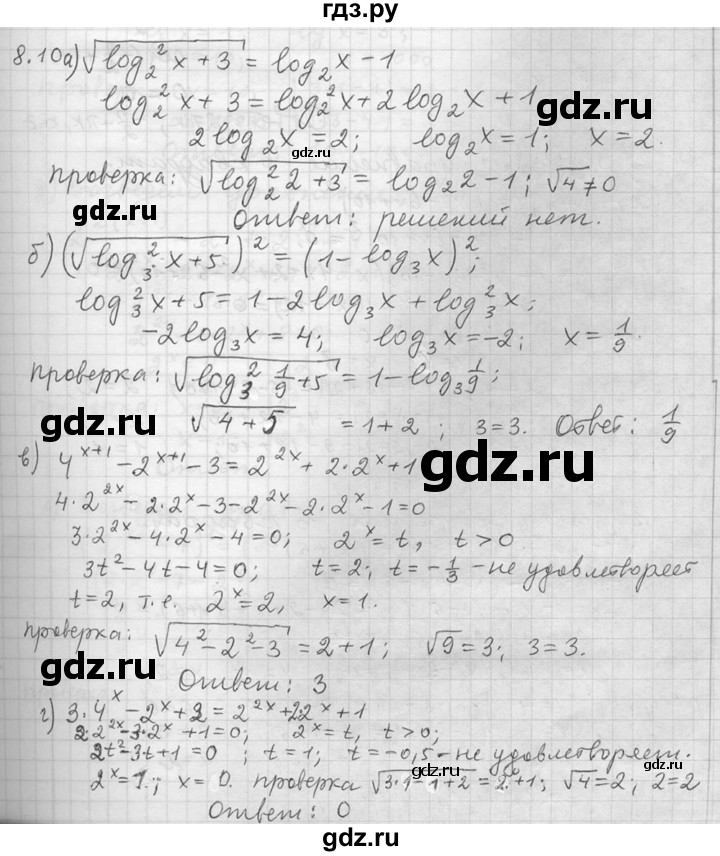 гдз.ру
8.10а) √(log₂²x + 3) = log₂x − 1
log₂²x + 3 = log₂²x + 2log₂x + 1
gdz.ru
2log₂x = 2; log₂x = 1; x = 2.
gdz.ru
проверка: √(log₂²2 + 3) = log₂2 − 1; √4 ≠ 0
gdz.ru
Ответ: решений нет.
б) (√(log₃²x + 5))² = (1 − log₃x)²;
log₃²x + 5 = 1 − 2log₃x + log₃²x;
−2log₃x = 4; log₃x = −2; x = 1/9.
gdz.ru
проверка: √(log₃² 1/9 + 5) = 1 − log₃ 1/9;
gdz.ru
√(4 + 5) = 1 + 2; 3 = 3. Ответ: 1/9
в) 4ˣ⁺¹ − 2ˣ⁺¹ − 3 = 2²ˣ + 2·2ˣ + 1
gdz.ru
4·2²ˣ − 2·2ˣ − 3 − 2²ˣ − 2·2ˣ − 1 = 0
3·2²ˣ − 4·2ˣ − 4 = 0; 2ˣ = t, t > 0
gdz.ru
3t² − 4t − 4 = 0; t = 2; t = −1/3 − не удовлетворяет
t = 2, т.е. 2ˣ = 2, x = 1.
проверка: √(4² − 2² − 3) = 2 + 1; √9 = 3; 3 = 3.
gdz.ru
Ответ: 3
gdz.ru
г) 3·4ˣ − 2ˣ + 2 = 2²ˣ + 2·2ˣ + 1
2·2²ˣ − 3·2ˣ + 1 = 0; 2ˣ = t, t > 0;
2t² − 3t + 1 = 0; t = 1; t = −0,5 − не удовлетворяет.
gdz.ru
2ˣ = 1; x = 0. проверка √(3·1 − 1 + 2) = 2⁰ + 1; √4 = 2; 2 = 2
Ответ: 0
gdz.ru